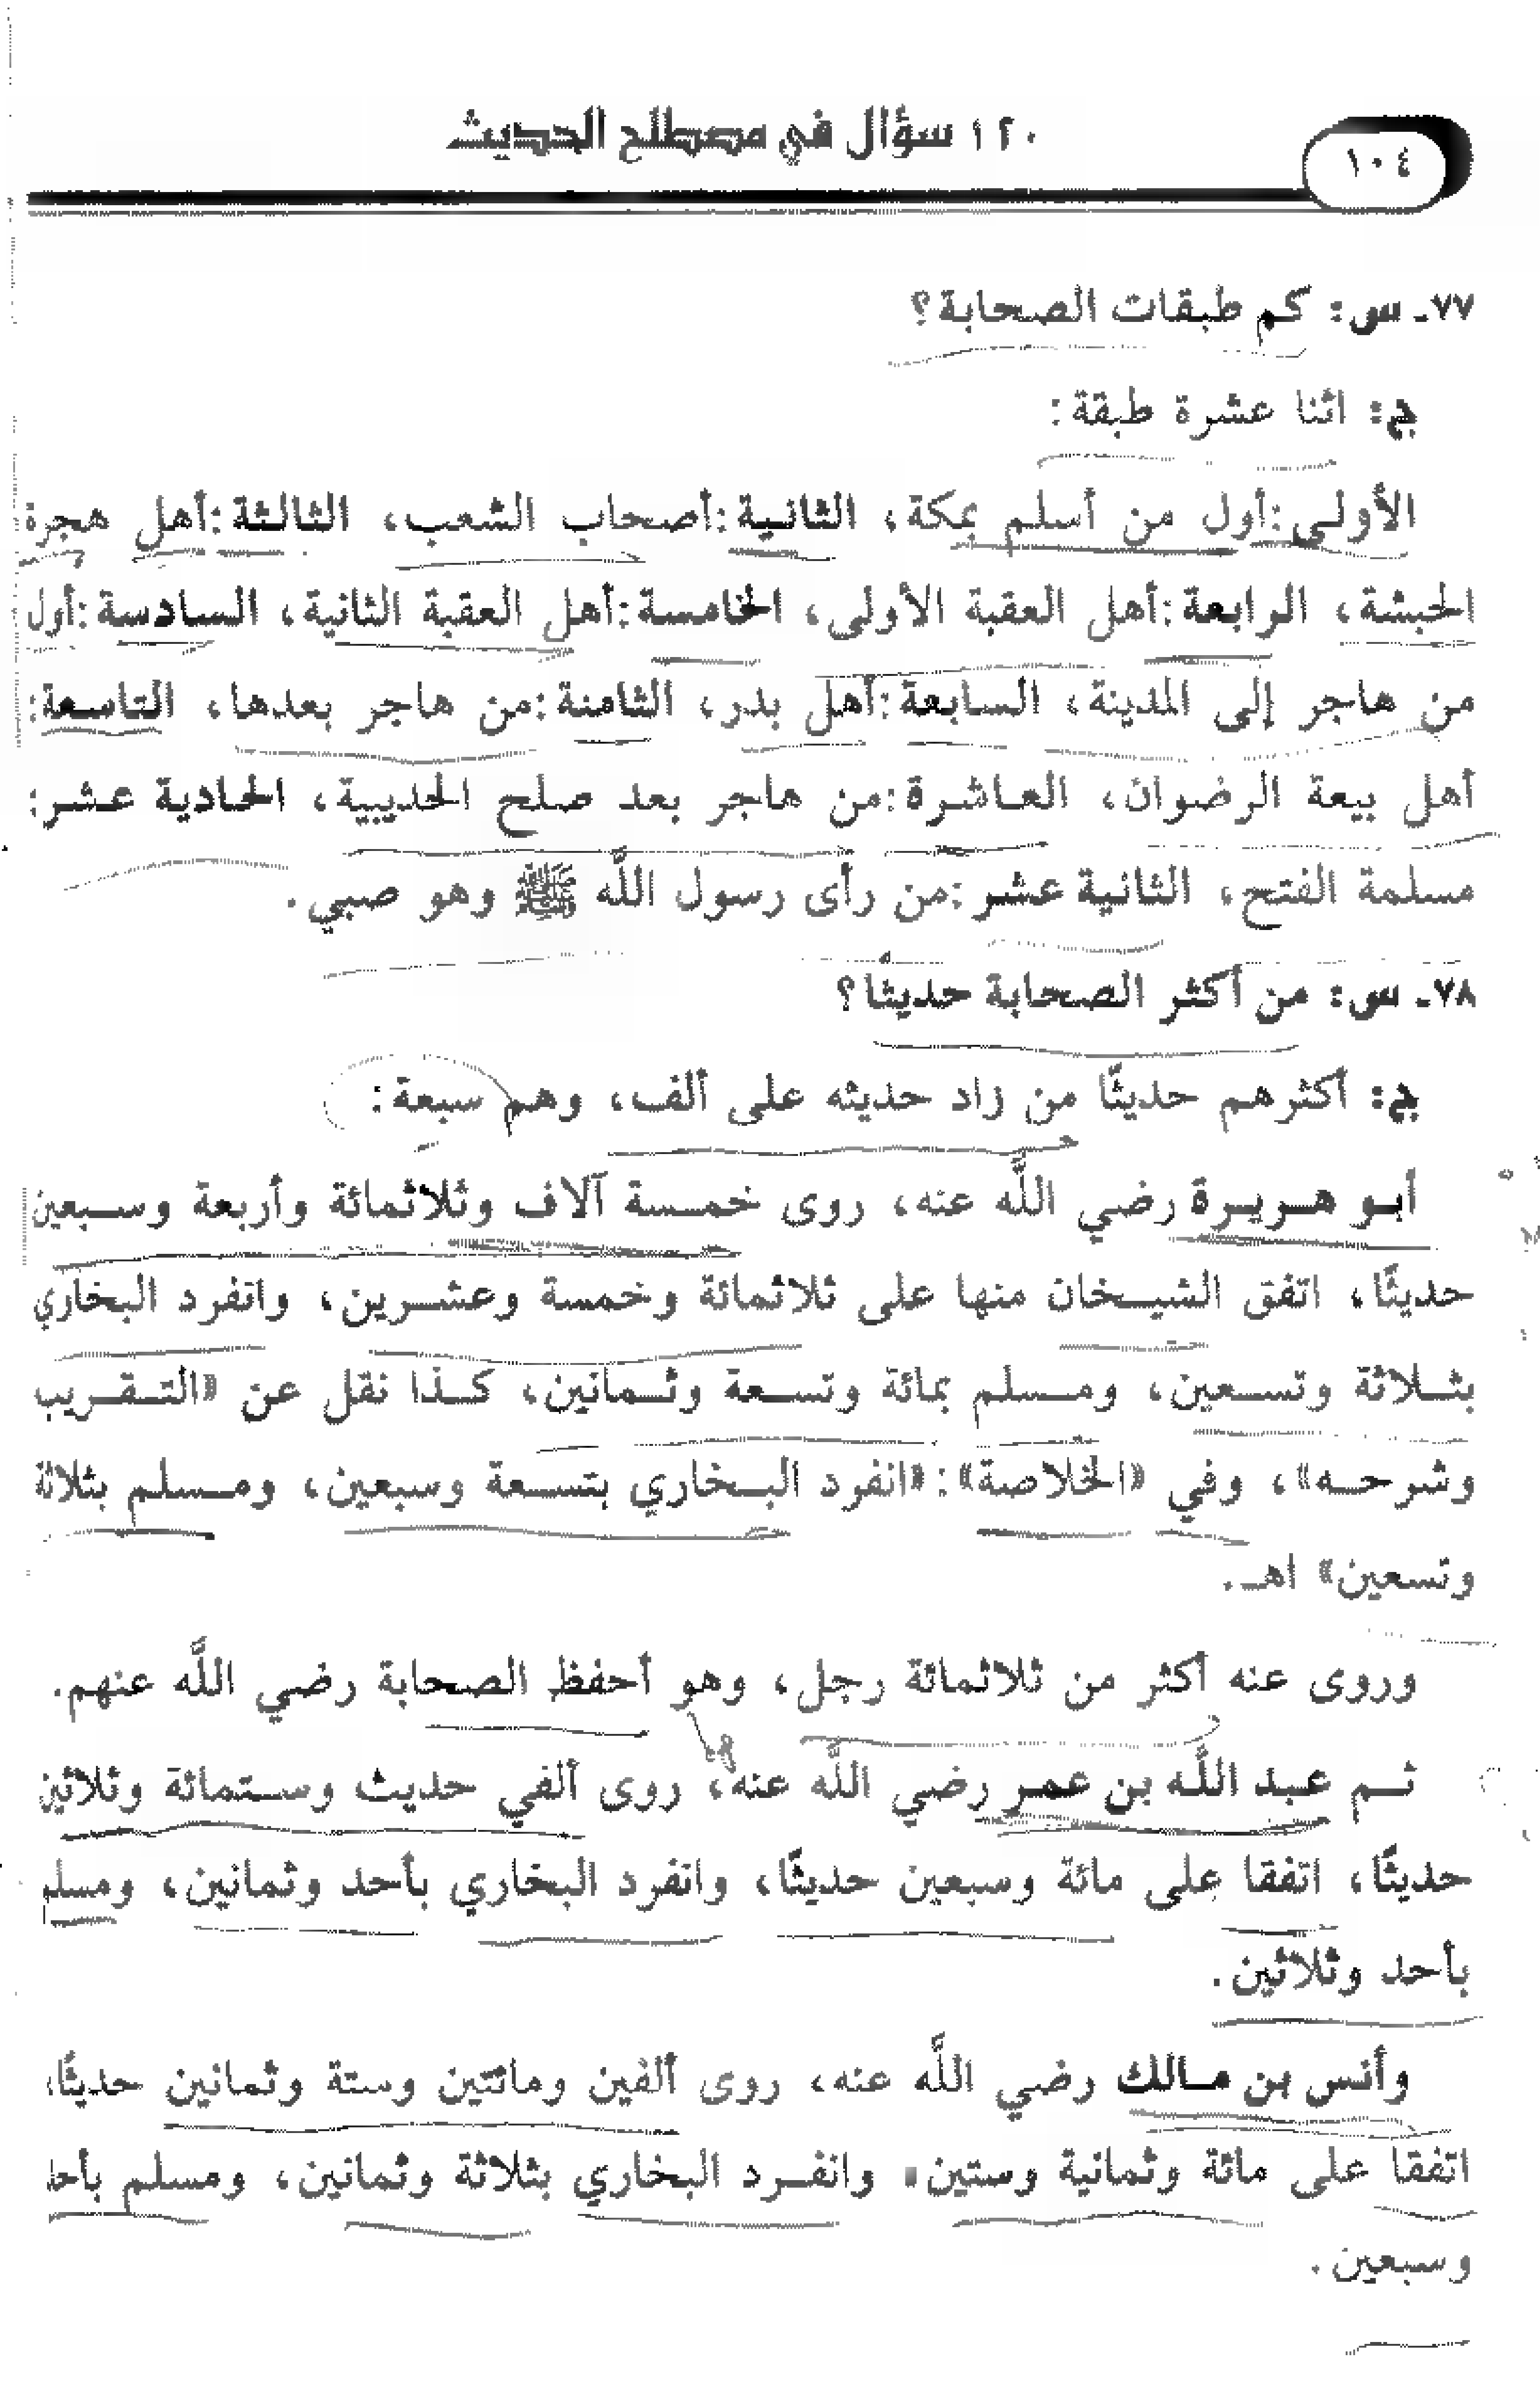 ١٠٤
١٢٠ سؤال في مصطلح الحديث
٧٧ـ س: كم طبقات الصحابة؟
ج: اثنا عشرة طبقة:
الأولى: أول من أسلم بمكة، الثانية: أصحاب الشعب، الثالثة: أهل هجرة
الحبشة، الرابعة: أهل العقبة الأولى، الخامسة: أهل العقبة الثانية، السادسة: أول
من هاجر إلى المدينة، السابعة: أهل بدر، الثامنة: من هاجر بعدها، التاسعة:
أهل بيعة الرضوان، العاشرة: من هاجر بعد صلح الحديبية، الحادية عشر:
مسلمة الفتح، الثانية عشر: من رأى رسول اللَّه ﷺ وهو صبي.
٧٨ـ س: من أكثر الصحابة حديثًا؟
ج: أكثرهم حديثًا من زاد حديثه على ألف، وهم سبعة:
أبو هريرة رضي اللَّه عنه، روى خمسة آلاف وثلاثمائة وأربعة وسبعين
حديثًا، اتفق الشيخان منها على ثلاثمائة وخمسة وعشرين، وانفرد البخاري
بثلاثة وتسعين، ومسلم بمائة وتسعة وثمانين، كذا نقل عن «التقريب
وشرحه»، وفي «الخلاصة»: «انفرد البخاري بتسعة وسبعين، ومسلم بثلاثة
وتسعين» اهـ.
وروى عنه أكثر من ثلاثمائة رجل، وهو أحفظ الصحابة رضي اللَّه عنهم.
ثم عبد اللَّه بن عمر رضي اللَّه عنه، روى ألفي حديث وستمائة وثلاثين
حديثًا، اتفقا على مائة وسبعين حديثًا، وانفرد البخاري بأحد وثمانين، ومسلم
بأحد وثلاثين.
وأنس بن مالك رضي اللَّه عنه، روى ألفين ومائتين وستة وثمانين حديثًا،
اتفقا على مائة وثمانية وستين، وانفرد البخاري بثلاثة وثمانين، ومسلم بأحد
وسبعين.